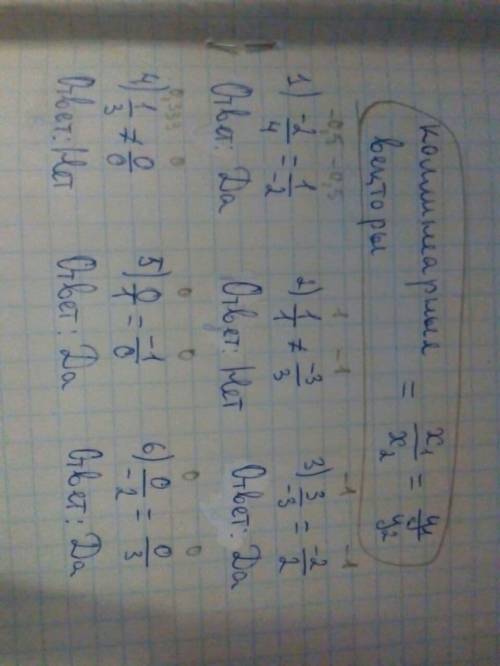 коллинеарные = x₁/x₂ = y₁/y₂
векторы
-0,5 -0,5
1) -2/4 = 1/-2
Ответ: Да
1 -1
2) 1/1 ≠ -3/3
Ответ: Нет
-1 -1
3) 3/-3 = -2/2
Ответ: Да
0,333 0
4) 1/3 ≠ 0/0
Ответ: Нет
0 0
5) 0/1 = -1/0
Ответ: Да
0 0
6) 0/-2 = 0/3
Ответ: Да